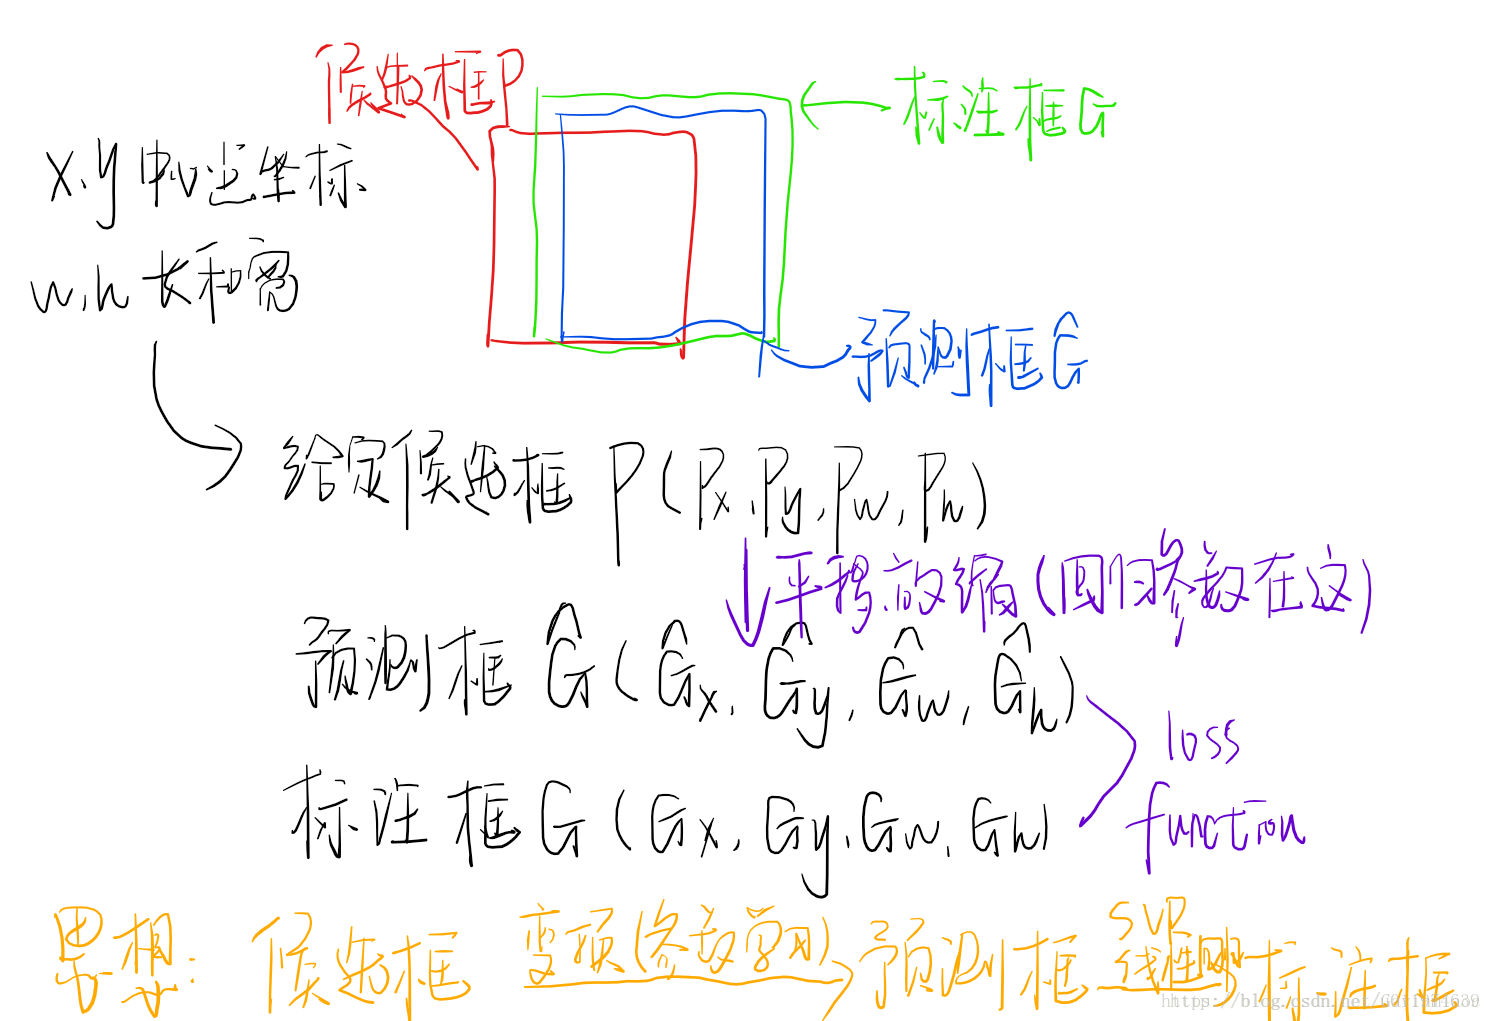 候选框P
标注框G
x,y中心坐标
w,h 长和宽
预测框Ĝ
给定候选框 P(Px,Py,Pw,Ph)
平移放缩(回归参数在这)
预测框 Ĝ(Ĝx,Ĝy,Ĝw,Ĝh)
loss
function
标注框G(Gx,Gy,Gw,Gh)
思想:候选框 变换(参数学习) 预测框 SVR 线性 标注框
https://blog.csdn.net/